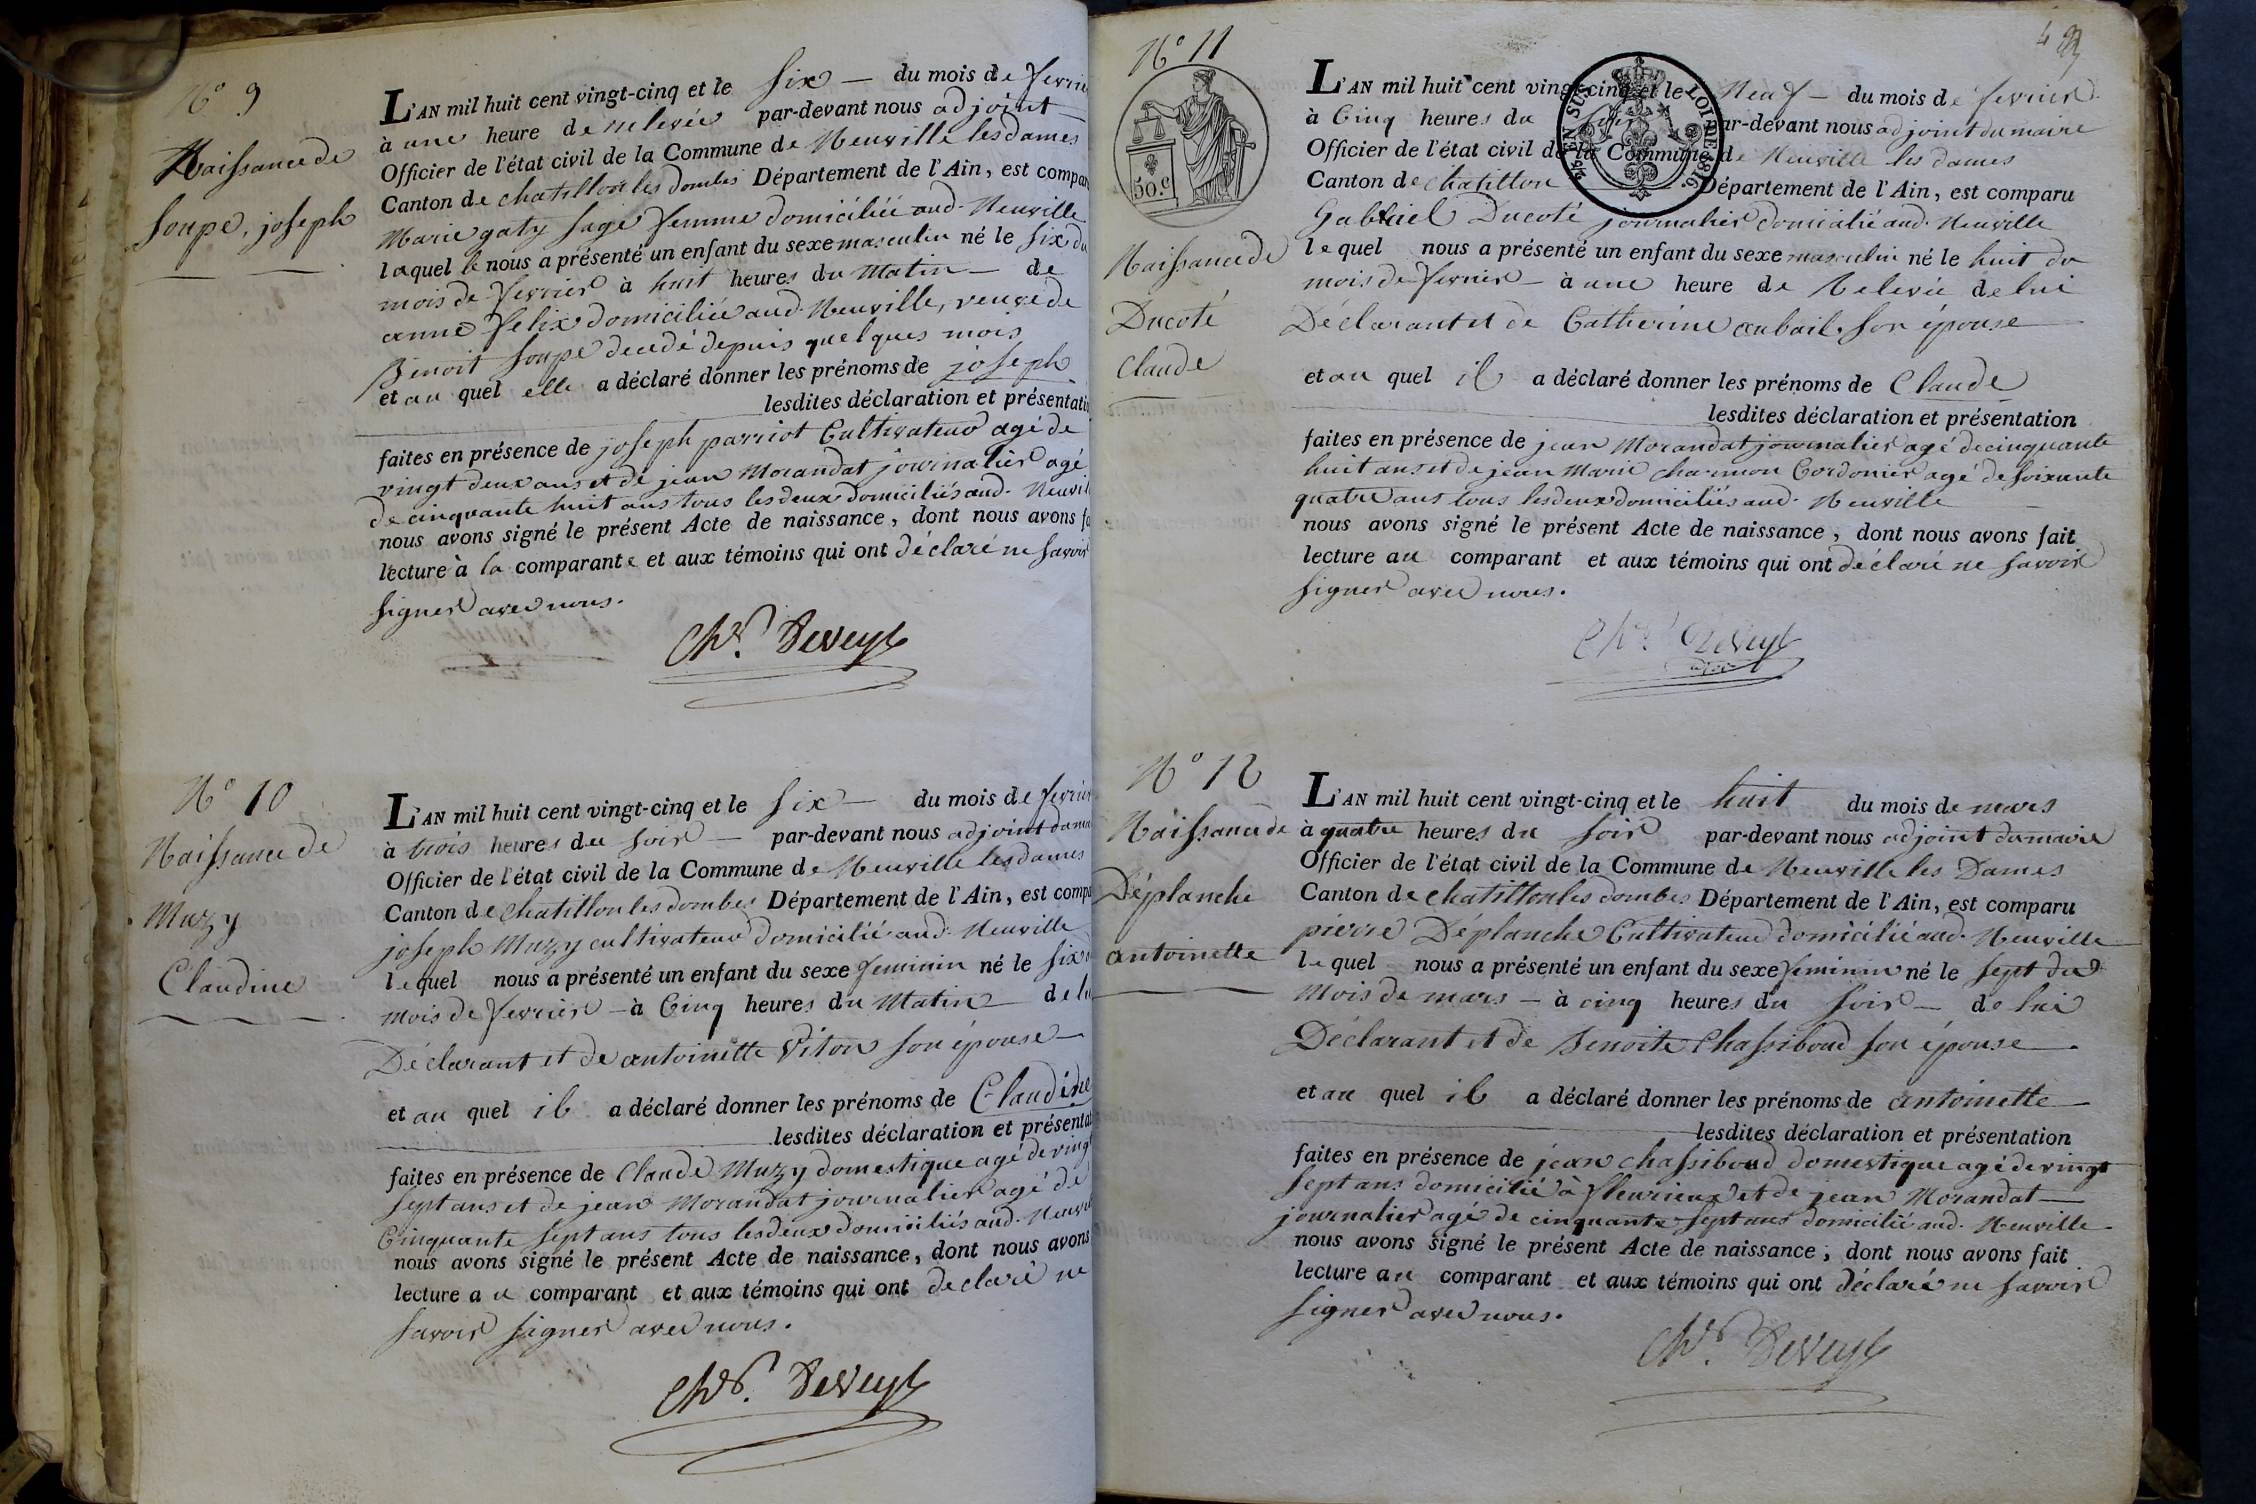 N° 9
Naissance de
Soupe, joseph
L'AN mil huit cent vingt-cinq et le six — du mois de fevrier
à une heure de relevée par-devant nous adjoint
Officier de l'état civil de la Commune de Neuville les dames
Canton de chatillon les dombes Département de l'Ain, est compar
Marie gaty sage femme domiciliée aud. Neuville
laquelle nous a présenté un enfant du sexe masculin né le six du
mois de fevrier à huit heures du Matin — de
anne felix domiciliée aud. Neuville, veuve de
Benoit Soupe decedé depuis quelques mois
et au quel elle a déclaré donner les prénoms de joseph
lesdites déclaration et présentatio
faites en présence de joseph parriot Cultivateur agé de
vingt deux ans et de jean Morandat journalier agé
de cinquante huit ans tous les deux domiciliés aud. Neuvil
nous avons signé le présent Acte de naissance, dont nous avons fa
lecture à la comparante et aux témoins qui ont déclaré ne savoir
signer avec nous.
Chr. Deveyl
N° 10
Naissance de
Muzy
Claudine
L'AN mil huit cent vingt-cinq et le six — du mois de fevrier
à trois heures du soir — par-devant nous adjoint du mai
Officier de l'état civil de la Commune de Neuville les dames
Canton de chatillon les dombes Département de l'Ain, est compa
joseph Muzy cultivateur domicilié aud. Neuville
lequel nous a présenté un enfant du sexe feminin né le six
mois de fevrier — à Cinq heures du Matin — de lu
Déclarant et de antoinette Piton son épouse —
et au quel il a déclaré donner les prénoms de Claudine
lesdites déclaration et présentat
faites en présence de Claude Muzy domestique agé de vingt
sept ans et de jean Morandat journalier agé de
Cinquante sept ans tous les deux domiciliés aud. Neuvil
nous avons signé le présent Acte de naissance, dont nous avons
lecture au comparant et aux témoins qui ont declaré ne
savoir signer avec nous.
Chr. Deveyl
N° 11
50.c
EN SUS
LOI DE 1816
Naissance de
Ducoté
Claude
L'AN mil huit cent vingt-cinq et le Neuf — du mois de fevrier
à Cinq heures du soir par-devant nous adjoint du maire
Officier de l'état civil de la Commune de Neuville les dames
Canton de chatillon Département de l'Ain, est comparu
Gabriel Ducoté journalier domicilié aud. Neuville
lequel nous a présenté un enfant du sexe masculin né le huit du
mois de fevrier — à une heure de Relevée de lui
Déclarant et de Catherine aubail son épouse
et au quel il a déclaré donner les prénoms de Claude
lesdites déclaration et présentation
faites en présence de jean Morandat journalier agé de cinquante
huit ans et de jean Marie charmon Cordonier agé de soixante
quatre ans tous les deux domiciliés aud. Neuville
nous avons signé le présent Acte de naissance, dont nous avons fait
lecture au comparant et aux témoins qui ont déclaré ne savoir
signer avec nous.
Chr. Deveyl
N° 12
Naissance de
Déplanche
antoinette
L'AN mil huit cent vingt-cinq et le huit du mois de mars
à quatre heures du soir par-devant nous adjoint du maire
Officier de l'état civil de la Commune de Neuville les Dames
Canton de chatillon les dombes Département de l'Ain, est comparu
pierre Déplanche Cultivateur domicilié aud. Neuville
lequel nous a présenté un enfant du sexe feminin né le sept du
Mois de mars — à cinq heures du soir — de lui
Déclarant et de Benoite Chassiboud son épouse
et au quel il a déclaré donner les prénoms de antoinette
lesdites déclaration et présentation
faites en présence de jean chassiboud domestique agé de vingt
sept ans domicilié à fleurieux et de jean Morandat
journalier agé de cinquante sept ans domicilié aud. Neuville
nous avons signé le présent Acte de naissance, dont nous avons fait
lecture au comparant et aux témoins qui ont déclaré ne savoir
signer avec nous.
Chr. Deveyl